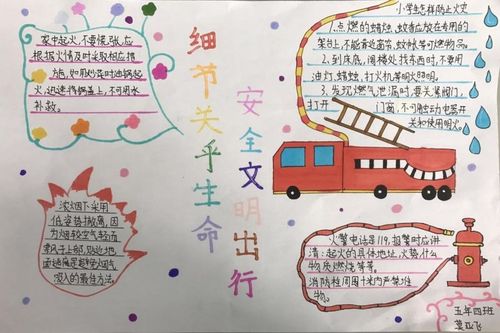 家中起火,不要慌张,应
根据火情及时采取相应措
方后,如果炒菜时油锅起
火,迅速将锅盖上,不可用水
补救。
细节关乎生命
安全文明出行
小学生怎样防止火灾
1.点燃的蜡烛,蚊香应放在专用的
架台上,不能靠近窗帘,蚊帐等可燃物品。
2.到床底,阁楼处找东西时,不要用
油灯,蜡烛,打火机等明火照明。
3.发现燃气泄漏时,要关紧阀门,
打开 门窗,不可触动电器开
关和使用明火。
浓烟下采用
低姿势撤离,因
为烟较空气轻而
飘风于上部,贴近地
面逃离是避免烟气
吸入的最佳方法。
火警电话是119,报警时应讲
清:起火的具体地址,火势,什么
物质燃烧等等。
消防栓周围十米内严禁堆
物。
五年四班